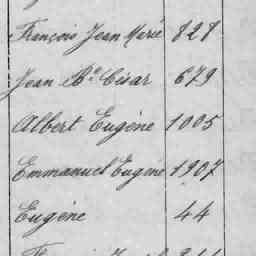 François Jean Marie 828
Jean Bte César 679
Albert Eugène 1005
Emmanuel Eugène 1907
Eugène 44